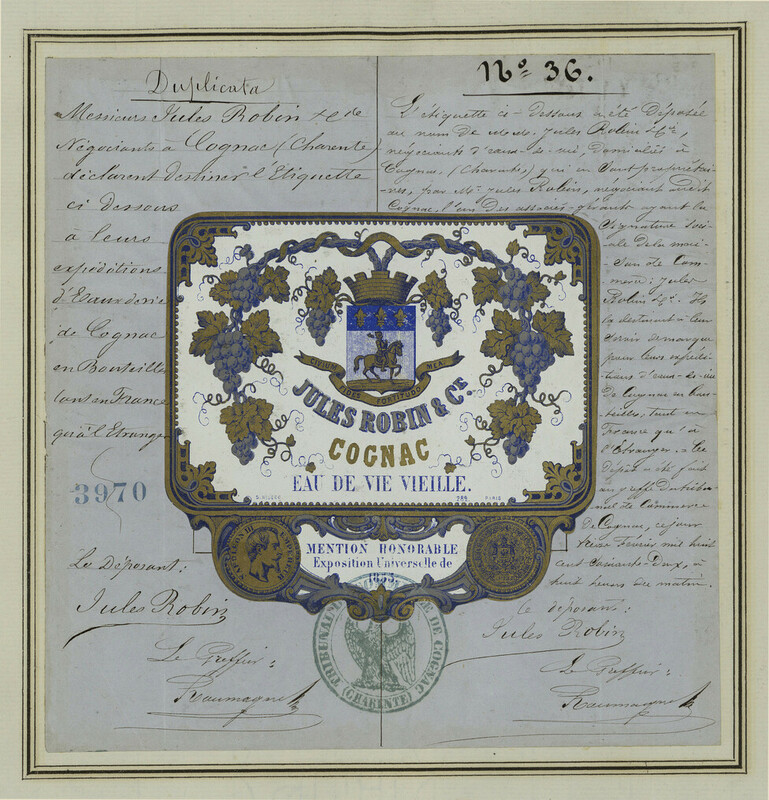 Duplicata
Messieurs Jules Robin & Cie
Négociants à Cognac (Charente)
déclarent destiner l'Etiquette
ci dessous
à leurs
expéditions
d'Eaux de vie
de Cognac
en Bouteilles
tant en France
qu'à l'Etranger
3970
Le Déposant:
Jules Robin
Le Greffier:
No 36.
L'étiquette ci-Dessous a été Déposée
au nom de M.M. Jules Robin & Cie,
négociants d'eaux-de-vie, Domiciliés à
Cognac, (Charente) qui en sont propriétai-
res, par Mr Jules Robin, négociant audit
Cognac, l'un Des associés-gérants ayant la
Signature Soci-
ale De la mai-
son de Com-
merce: Jules
Robin & Cie. Ils
la destinent à leur
servir de marque
pour leurs expédi-
tions d'eaux-de-vie
De Cognac en bou-
teilles, tant en
France qu'à
l'Etranger. Ce
Dépôt a été fait
au greffe du tribu-
nal de Commerce
De Cognac, ce jour
treize Février mil huit
cent Soixante-Deux, à
huit heures du matin.
Le déposant:
Jules Robin
Le Greffier:
CIVIUM FIDES FORTITUDO MEA.
JULES ROBIN & CE.
COGNAC
EAU DE VIE VIEILLE.
289 PARIS
NAPOLEON III EMPEREUR
MENTION HONORABLE
Exposition Universelle de
1855.
TRIBUNAL DE COMMERCE DE COGNAC
(CHARENTE)